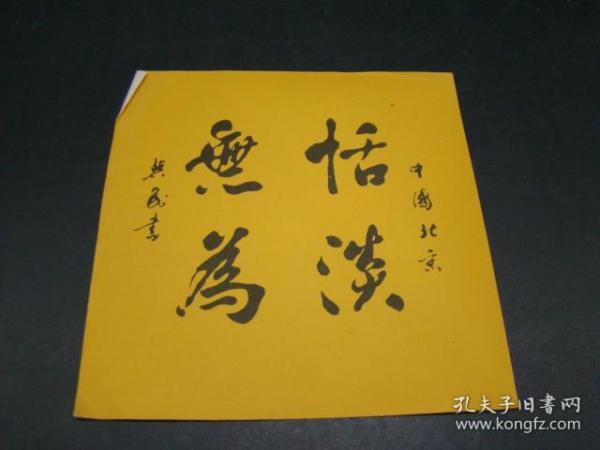 中國北京
恬淡
無為
書
孔夫子旧書网
www.kongfz.com